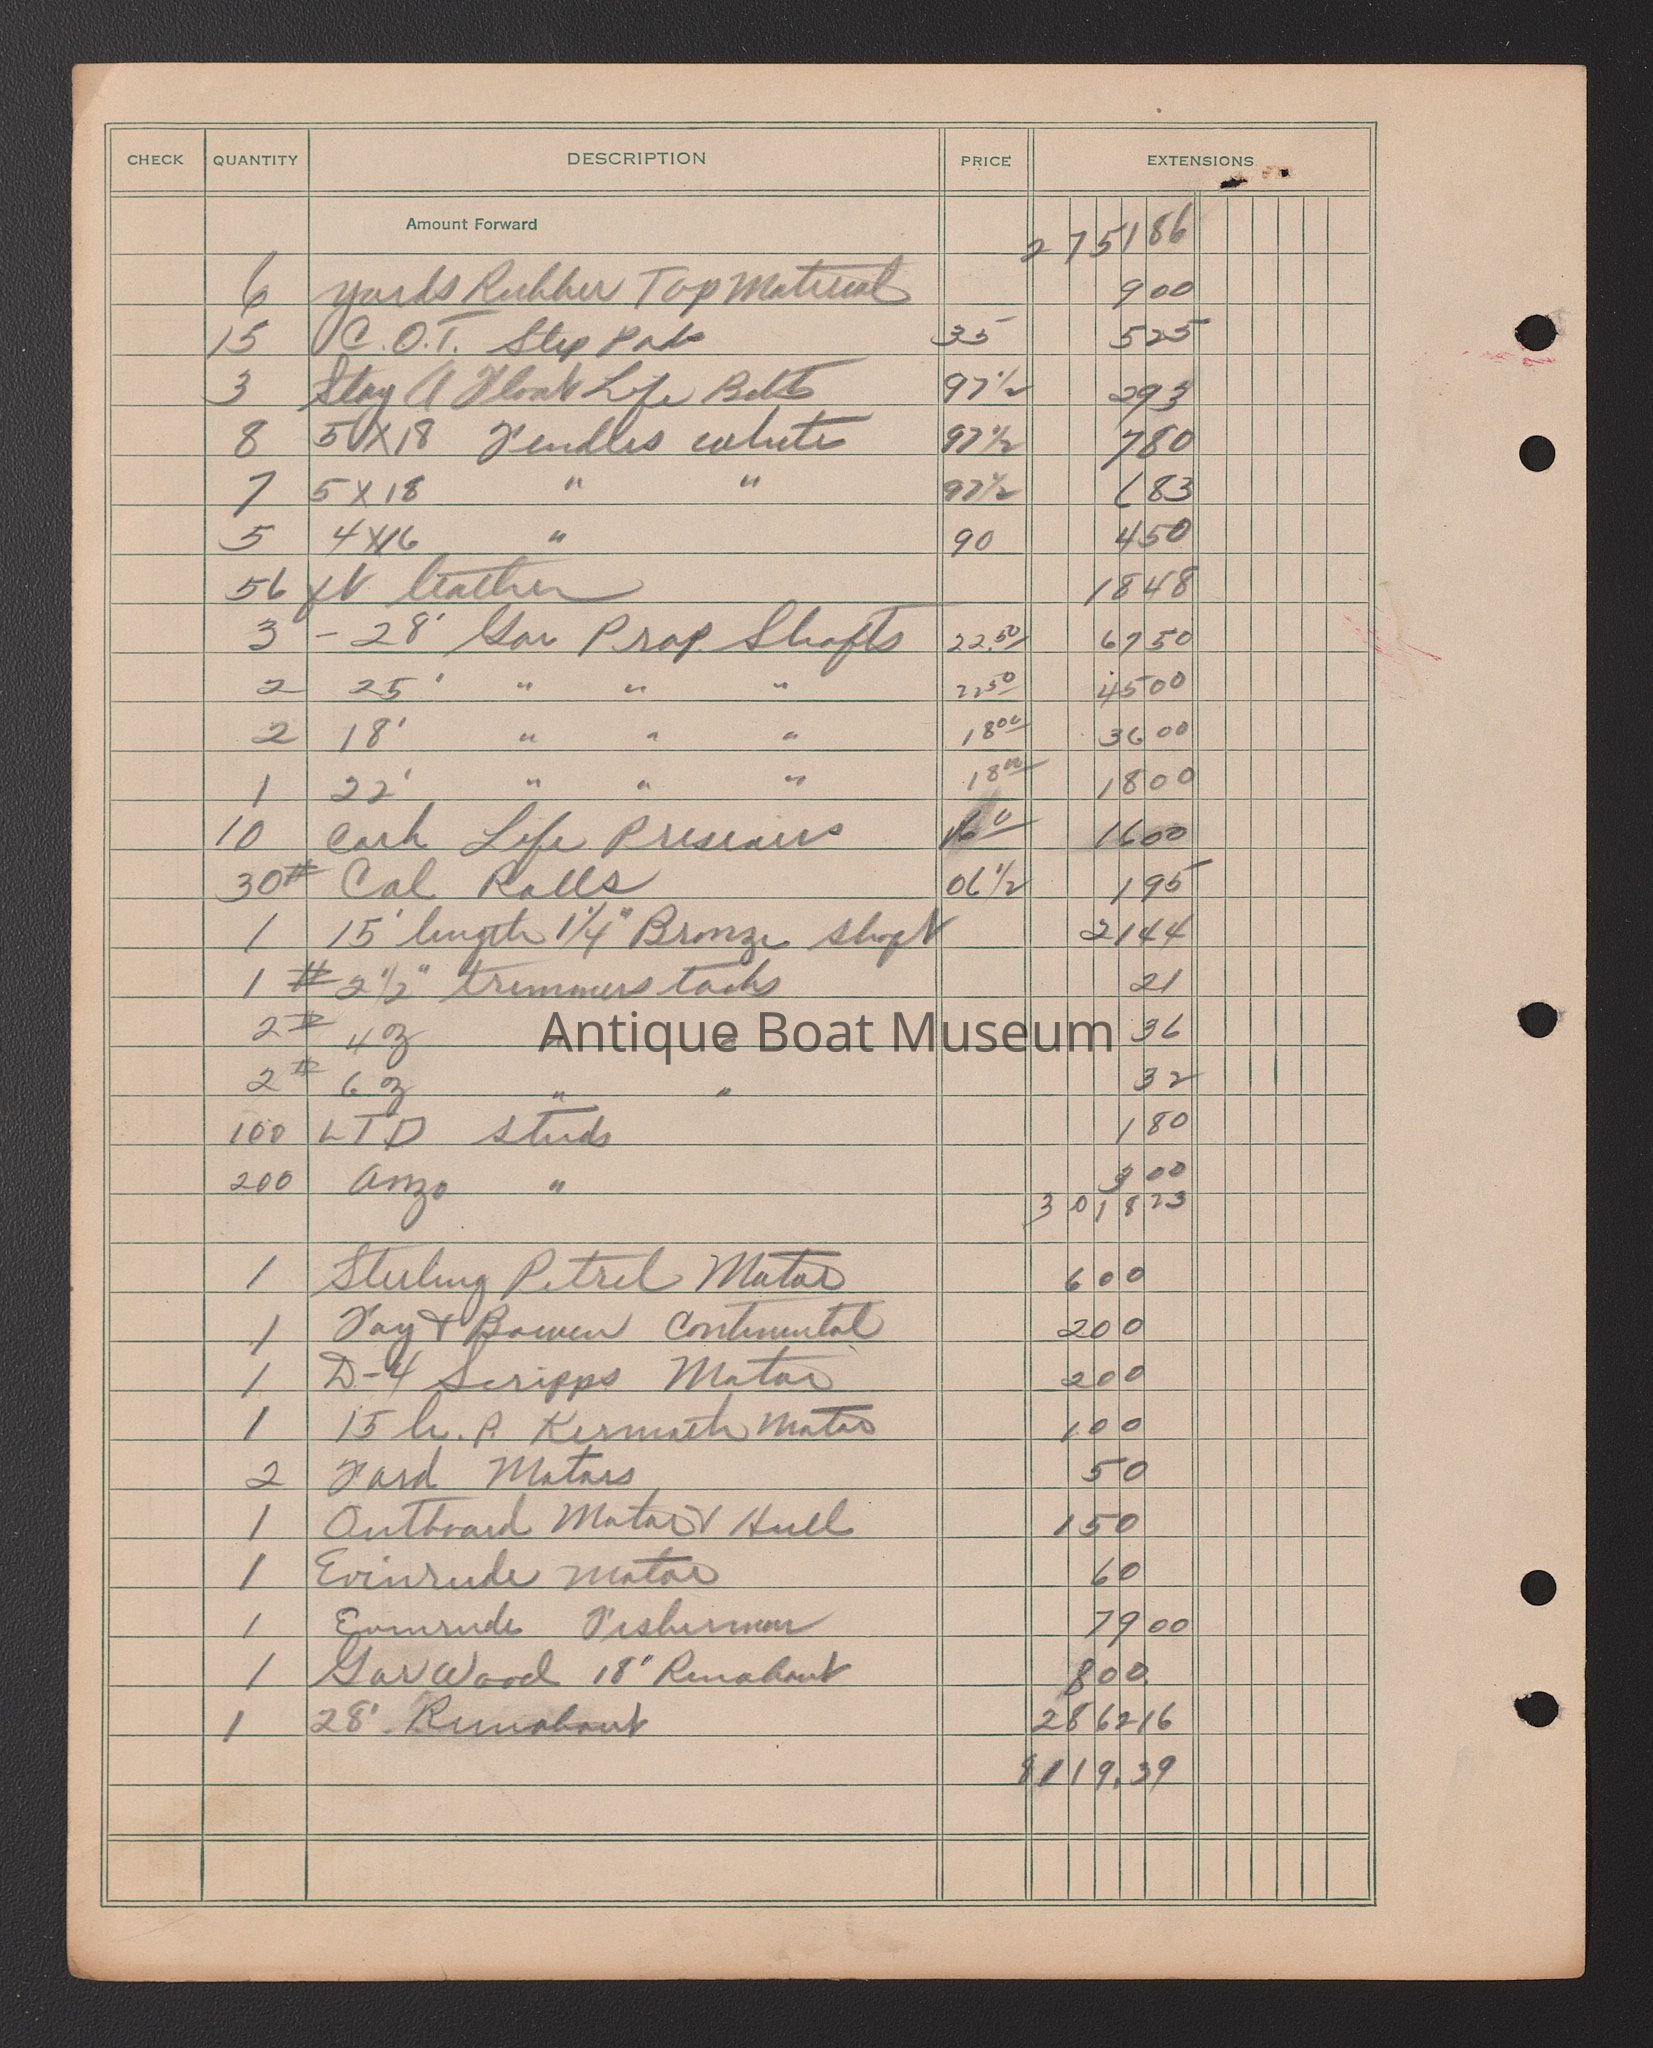 CHECK QUANTITY DESCRIPTION PRICE EXTENSIONS
Amount Forward 2 7 5 1 86
6 yards Rubber Top Material 9 00
15 C.O.T. Step Pads 35 5 25
3 Stay A Float Life Belts 97 1/2 2 93
8 5 X 18 Fendles white 97 1/2 7 80
7 5 X 18 " " 97 1/2 6 83
5 4 X 16 " 90 4 50
56 ft leather 18 48
3 - 28' Gar Prop. Shafts 22.50 67 50
2 25' " " " 22 50 45 00
2 18' " " " 18 00 36 00
1 22' " " " 18 00 18 00
10 Cork Life Preservers 16 00
30# Cal Rolls 06 1/2 1 95
1 15' length 1 1/4" Bronze shaft 21 44
1 # 2 1/2" trimmers tacks 21
2 # 4 oz " " 36
2 # 6 oz " " 32
100 L T D studs 1 80
200 Anzo " 3 00
3 0 1 8 23
1 Sterling Petrel Motor 600
1 Fay & Bowen Continental 200
1 D-4 Scripps Motor 200
1 15 h.p. Kermath Motor 100
2 Ford Motors 50
1 Outboard Motor & Hull 150
1 Evinrude Motor 60
1 Evinrude Fisherman 79 00
1 Gar Wood 18' Runabout 800
1 28' Runabout 2862 16
8119.39
Antique Boat Museum